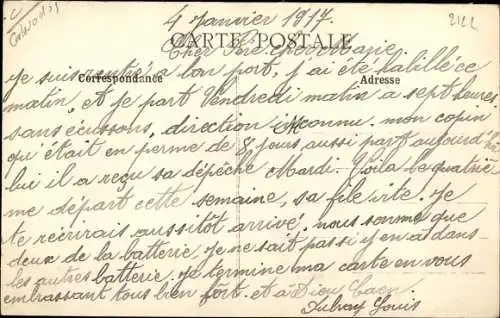 4 Janvier 1917.
2122
CARTE POSTALE
Cher Père
Correspondance
Adresse
Je suis rentré a bon port, j'ai été habillé ce
matin, et je part Vendredi matin a sept heures
sans écussons, direction inconnu. mon copin
qu'était en perme de 8 jours aussi part aujourd'hui
lui il a reçu sa dépêche Mardi. Voila la quatrie
me départ cette semaine, sa file vite. Je
te récrirais aussitôt arrivé. nous somme que
deux de la batterie, Je ne sait pas si y en a dans
les autres batterie. Je termine ma carte en vous
embrassant tous bien fort. et à Dieu Caen.
Louis